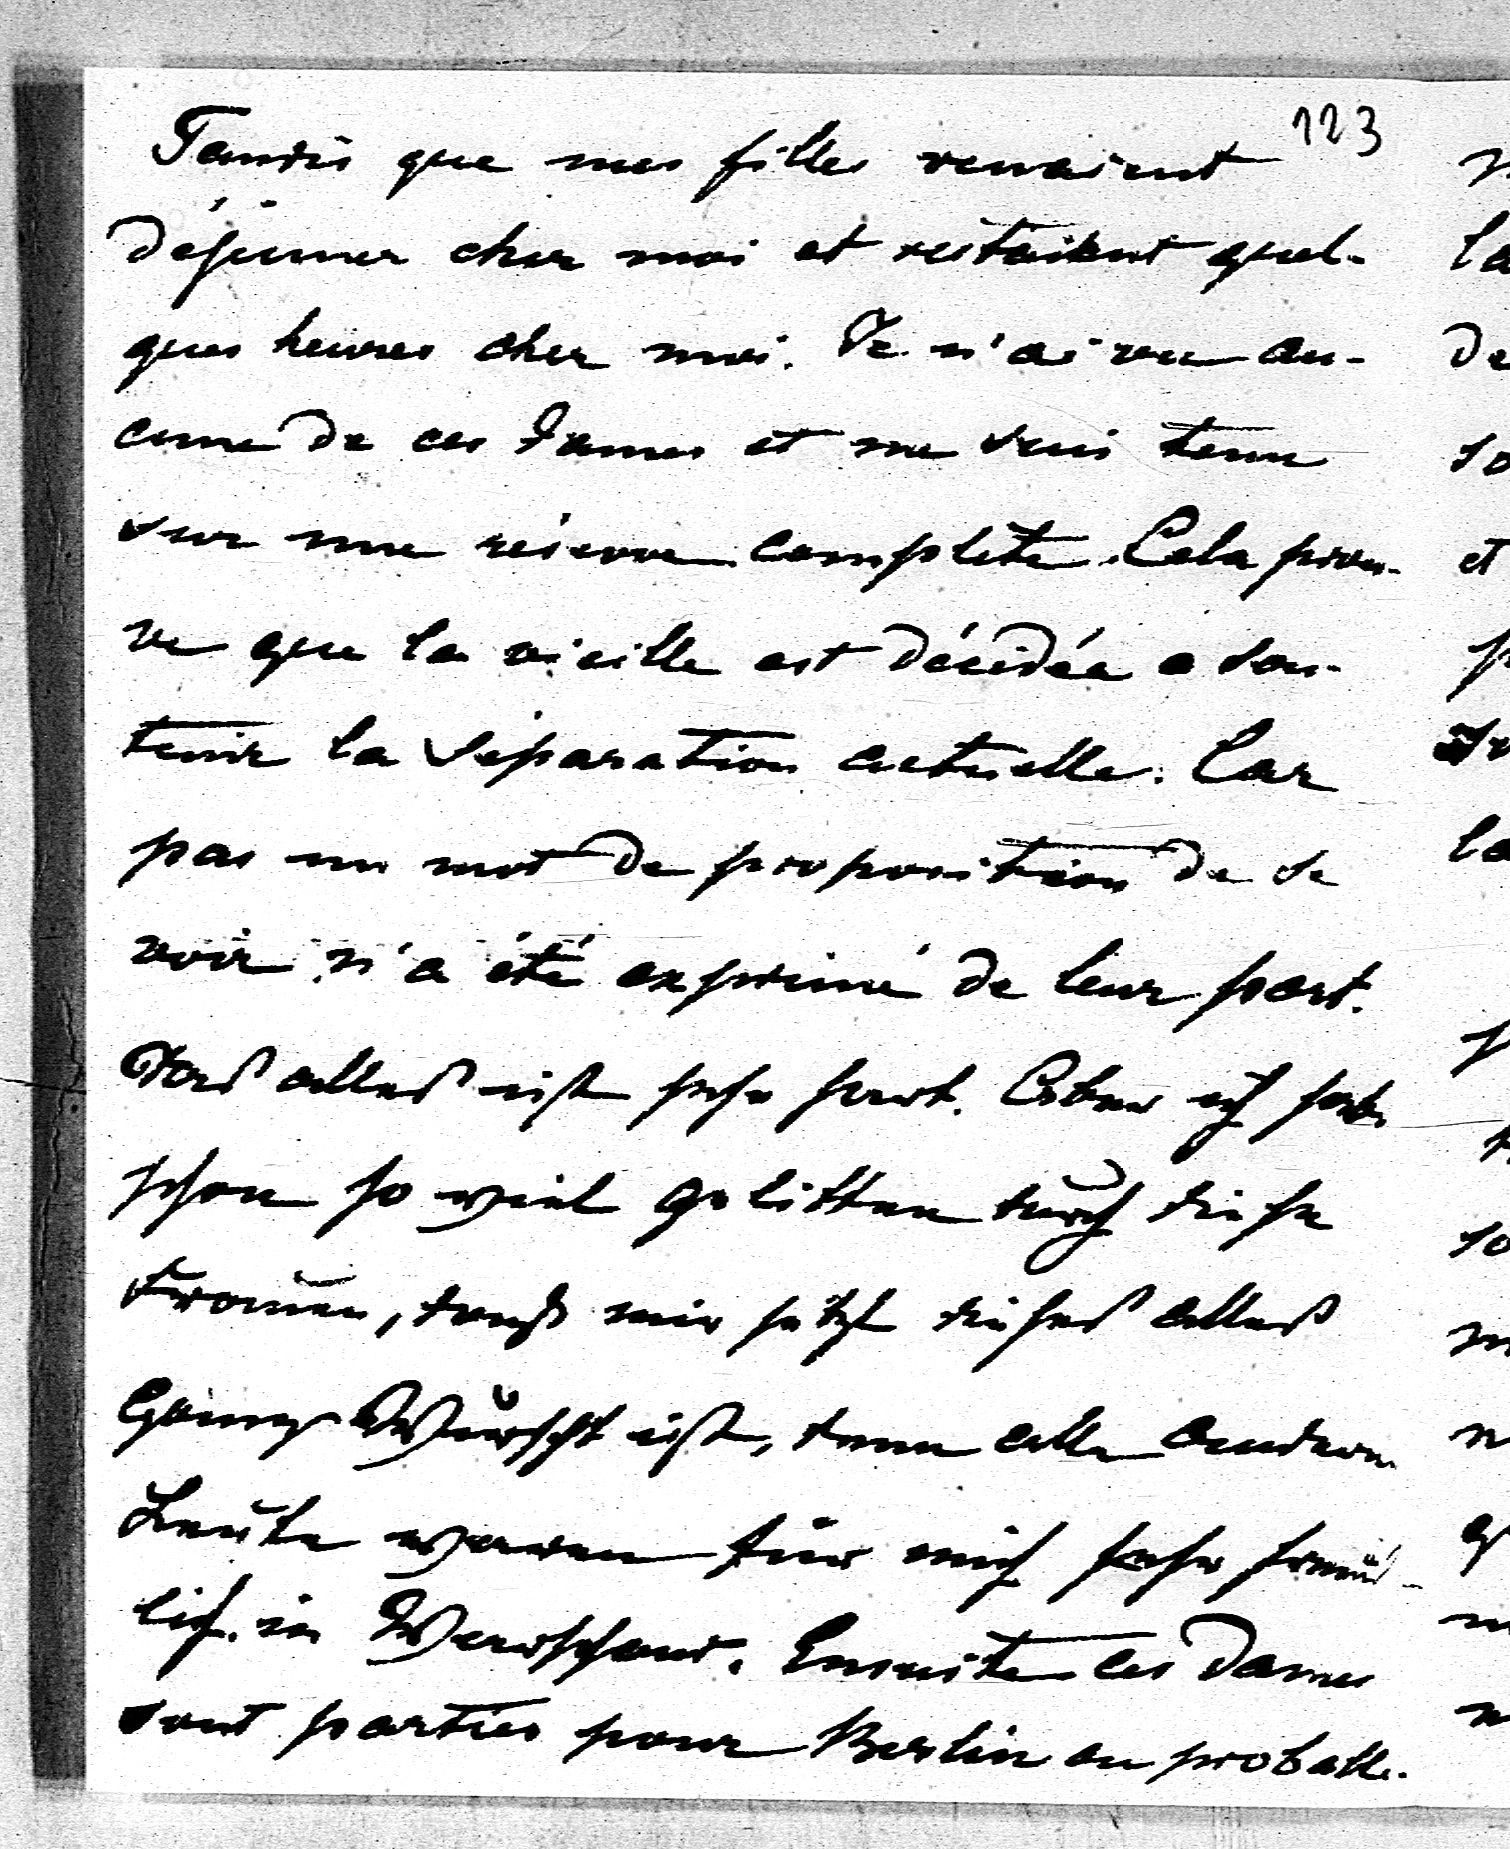 123
Tandis que mes filles venaient
déjeuner chez moi et restaient quel-
ques heures chez moi. Je n'ai vu au-
cune de ces dames et me suis tenu
sur une réserve complète. Cela prou-
ve que la vieille est décidée a sou-
tenir la séparation actuelle. Car
pas un mot de proposition de se
voir n'a été exprimé de leur part.
Das alles ist sehr hart. Aber ich habe
schon so viel gelitten durch diese
Frauen, dass mir jetzt dieses alles
Ganz Wurscht ist, denn alle anderen
Leute waren für mich sehr freund-
lich in Warschau. Ensuite ces dames
sont parties pour Berlin ou probable-